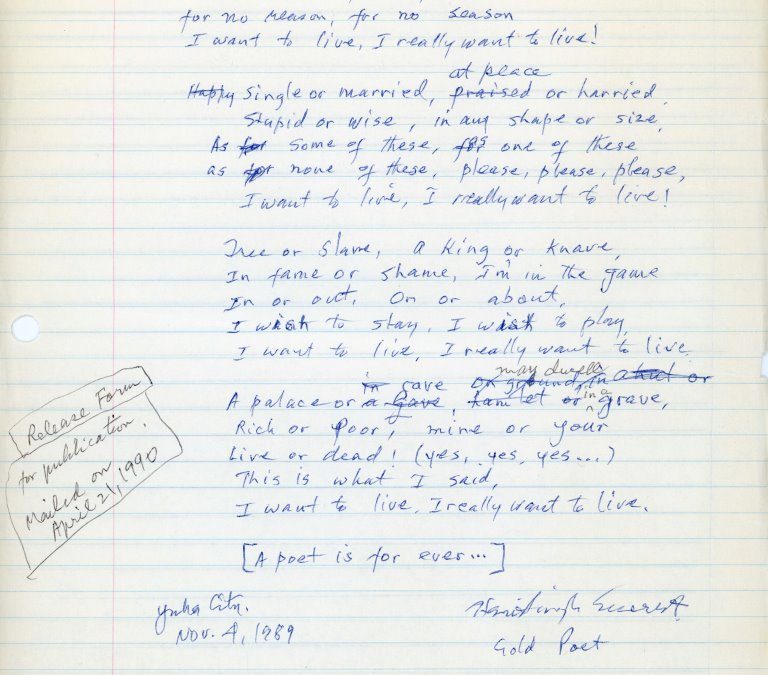 for no reason, for no season
I want to live, I really want to live!
at peace
Happy Single or married, praised or harried,
Stupid or wise, in any shape or size,
As for some of these, as one of these
as for none of these, please, please, please,
I want to live, I really want to live!
Free or Slave, a King or Knave,
In fame or shame, I'm in the game
In or out, On or about,
I wish to stay, I wish to play,
I want to live, I really want to live.
may dwell
in cave or ground, in a hut or
A palace or a Cave, hamlet or in a grave,
Rich or Poor, mine or your
Live or dead! (yes, yes, yes...)
This is what I said,
I want to live, I really want to live.
[A poet is for ever...]
Yuba City.
Nov. 4, 1989
Hari Singh Everest
Gold Poet
Release Form
for publication.
Mailed on
April 21, 1990